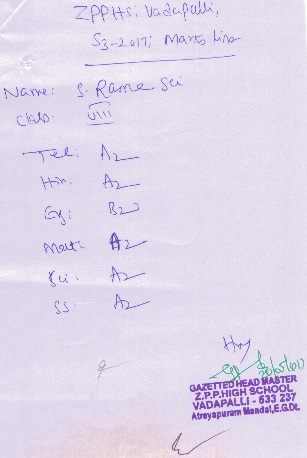 ZPPHS: Vadapalli,
S3-2017; Marks List
Name: S. Rama Sri
Class: VIII
Tel: A2
Hin: A2
Eg: B2
Mat: A2
Sci: A2
SS: A2
HM
GAZETTED HEAD MASTER
Z.P.P.HIGH SCHOOL
VADAPALLI - 533 237
Atreyapuram Mandal,E.G.Dt.